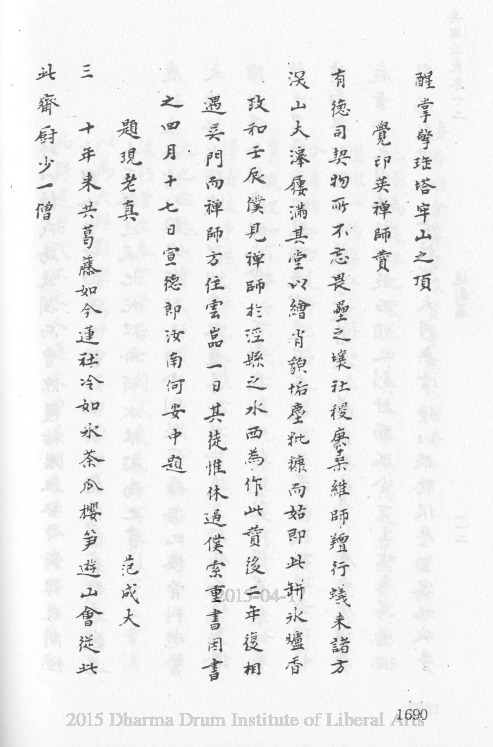 醒掌擘琁塔窣山之頂
覺印英禪師贊
有德司契物所不忘畏壘之壤社稷庚桑維師羶行蟻來諸方
渓山大澤屨滿其堂以繪肖貌垢塵粃糠而姑即此缾水爐香
政和壬辰僕見禪師於涇縣之水西為作此贊後二年復相
遇吳門而禪師方住雲嵒一日其徒惟休過僕索重書因書
之四月十七日宣德郎汝南何安中題
題現老真
范成大
三十年來共葛藤如今蓮社冷如冰茶瓜櫻笋遊山會從此
此齋厨少一僧
2015-04-1
1690
2015 Dharma Drum Institute of Liberal Arts